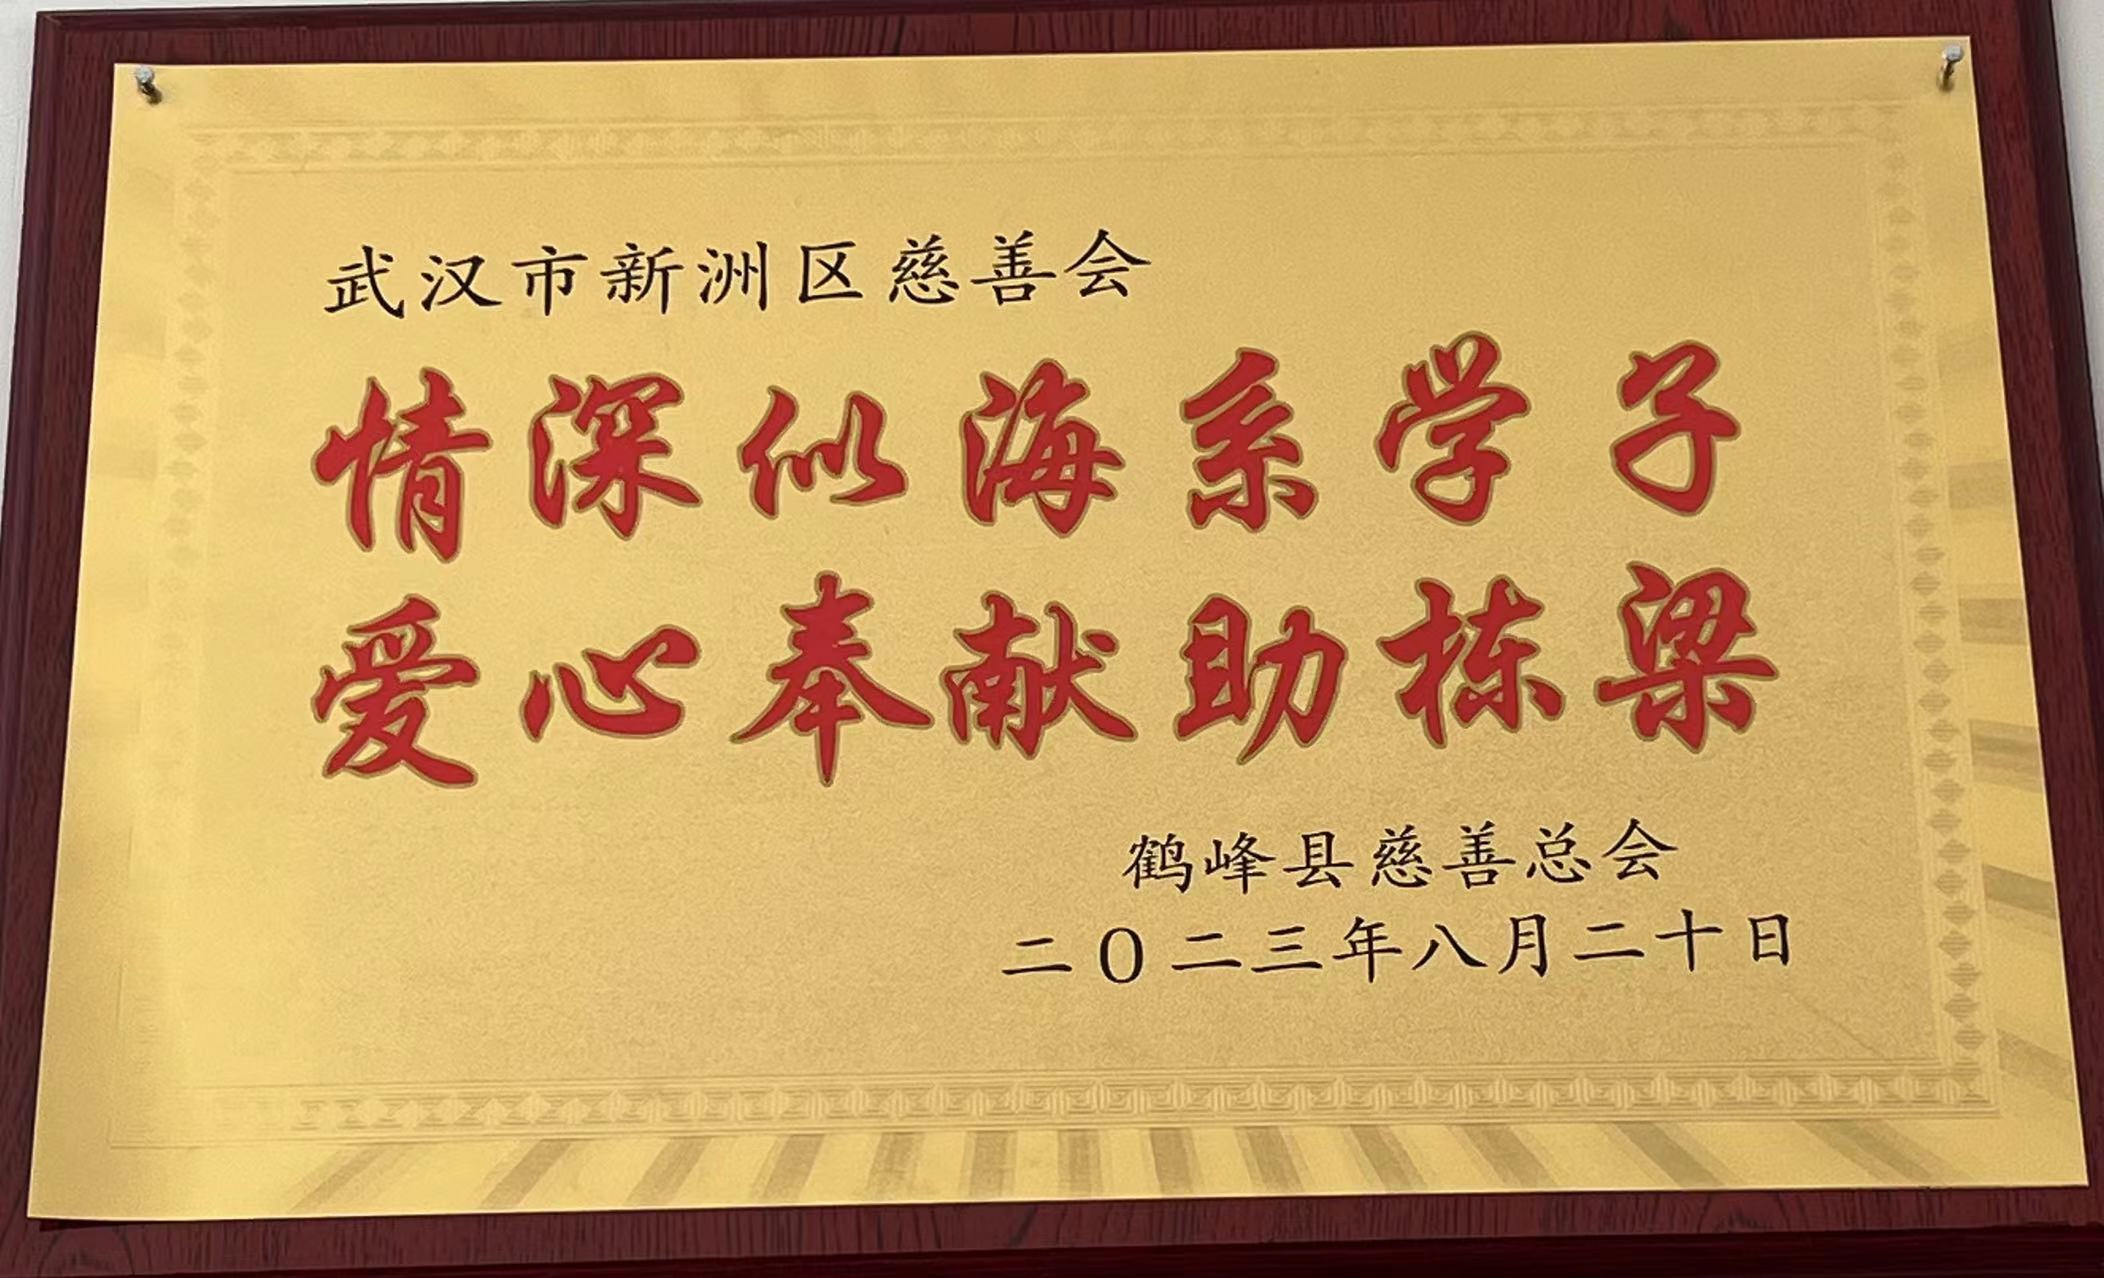 武汉市新洲区慈善会
情深似海系学子
爱心奉献助栋梁
鹤峰县慈善总会
二O二三年八月二十日